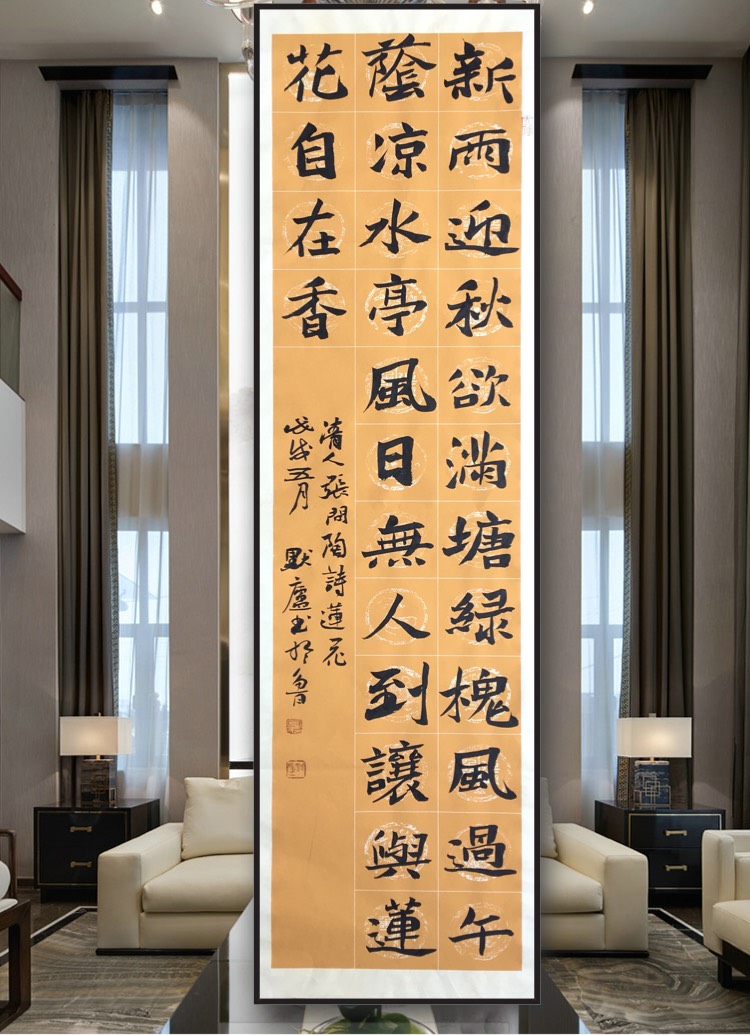 新雨迎秋欲满塘緑槐風過午
蔭凉水亭風日無人到讓與蓮
花自在香
清人張問陶詩蓮花
戊戌五月 默廬书於魯